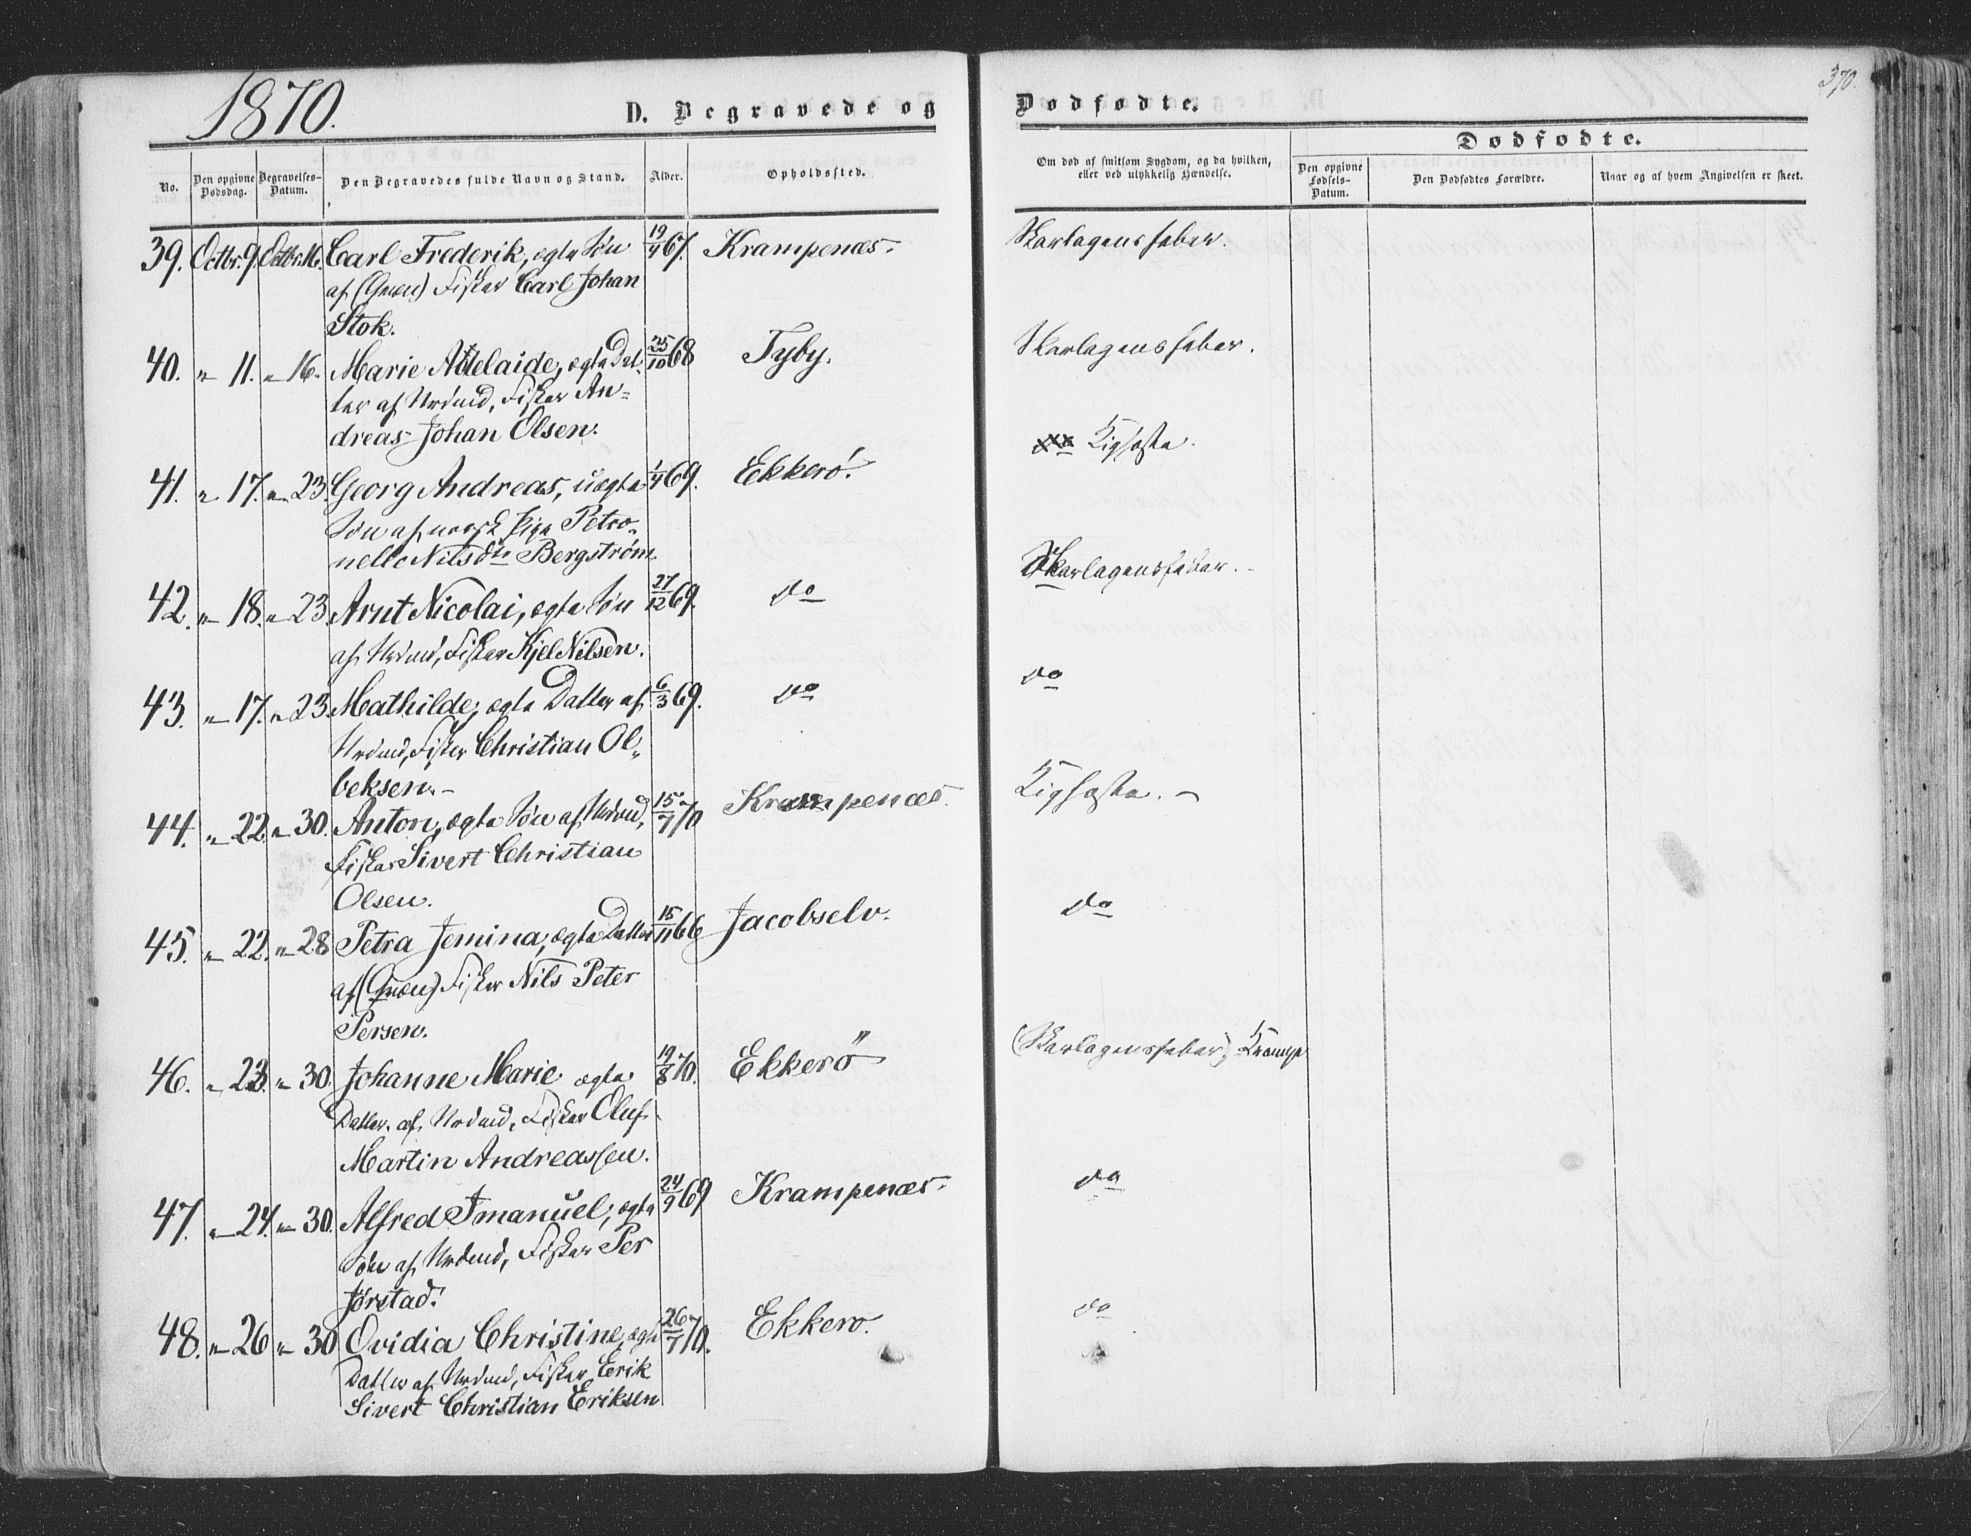 1870.
370.
D. Begravede og Dødfødte.
Dødfødte.
No.
Den opgivne Dødsdag.
Begravelses-Datum.
Den Begravedes fulde Navn og Stand.
Alder.
Opholdssted.
Om død af smitsom Sygdom, og da hvilken, eller ved ulykkelig Hændelse.
Den opgivne Fødsels-Datum.
Den Dødfødtes Forældre.
Naar og af hvem Angivelsen er skeet.
39. Octbr. 9. Octbr. 16. Carl Frederik, ægte Søn 19/4 67. Krampenæs. Skarlagensfeber.
af (Qvæn) Fisker Carl Johan
Stok.
40. " 11. " 16. Marie Adelaide, ægte Dat- 25/10 68 Tyby. Skarlagensfeber.
ter af Nrdmd, Fisker An-
dreas Johan Olsen.
41. " 17. " 23. Georg Andreas, uægte 1/4 69. Ekkerö. do Kighoste.
Søn af norsk Pige Petro-
nelle Nilsdtr Bergström
42. " 18. " 23. Arnt Nicolai, ægte Søn 27/12 69. do Skarlagensfeber.
af Nrdmd, Fisker Kjel Nilsen.
43. " 17. " 23. Mathilde, ægte Datter af 6/3 69. do do
Nrdmd, Fisker Christian Ol-
beksen.
44. " 22. " 30. Anton, ægte Søn af Nrdmd, 15/7 70 Krampenæs. Kighoste.
Fisker Sivert Christian
Olsen.
45. " 22. " 28 Petra Jemina, ægte Datter 15/11 66 Jacobselv. do
af (Qvæn) Fisker Nils Peter
Persen.
46. " 23. " 30. Johanne Marie ægte 19/8 70. Ekkerö (Skarlagensfeber) Krampe
Datter af Nrdmd, Fisker Oluf
Martin Andreassen.
47. " 24. " 30. Alfred Imanuel, ægte 24/9 69 Krampenæs. do
Søn af Nrdmd, Fisker Per
Jørstad.
48. " 26 " 30 Ovidia Christine, ægte 26/7 70. Ekkerö. do
Datter af Nrdmd, Fisker Erik
Sivert Christian Eriksen